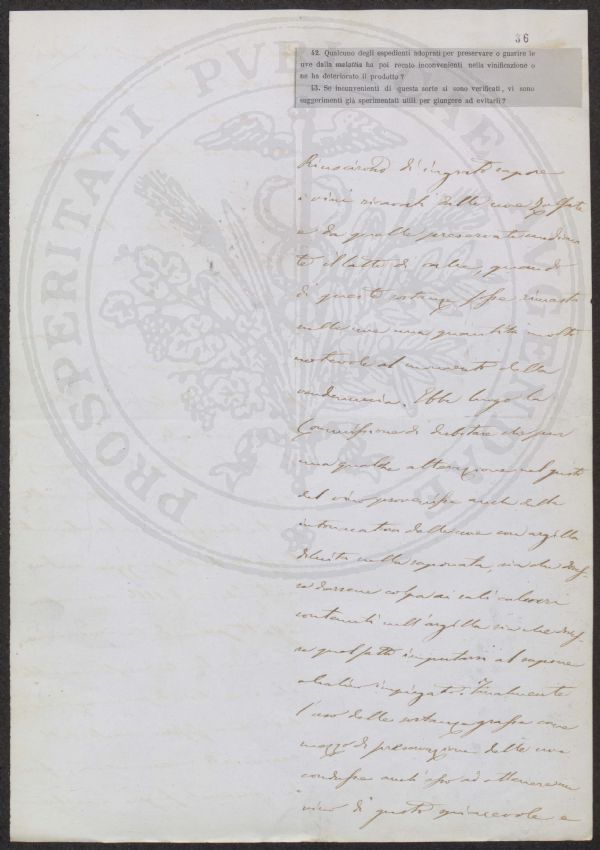 36
42. Qualcuno degli espedienti adoprati per preservare o guarire le
uve dalla malattia ha poi recato inconvenienti nella vinificazione o
ne ha deteriorato il prodotto?
43. Se inconvenienti di questa sorte si sono verificati, vi sono
suggerimenti già sperimentati utili per giungere ad evitarli?
PROSPERITATI PVBLICAE AVGENDAE
Riuscirono d'ingrato sapore
i vini ricavati dalle uve
e da quelle preservate median
te il latte di calce, quando
di queste sostanze fosse rimasta
nelle uve una quantità molto
notevole al momento della
vendemmia. Ebbe luogo la
Commissione di dubitare che per
una qualche alterazione nel gusto
del vino provenisse anche dalla
intonicatura delle uve con argilla
diluita nella saponata, sia che
si dovesse colpa ai sali calcarei
contenuti nell'argilla sia che
si quel fatti imputarsi al sapone
alcalino impiegato. Finalmente
l'uso delle sostanze grasse come
mezzo di preservazione delle uve
condusse anch'esso ad ottenere un
vino di gusto spiacevole e